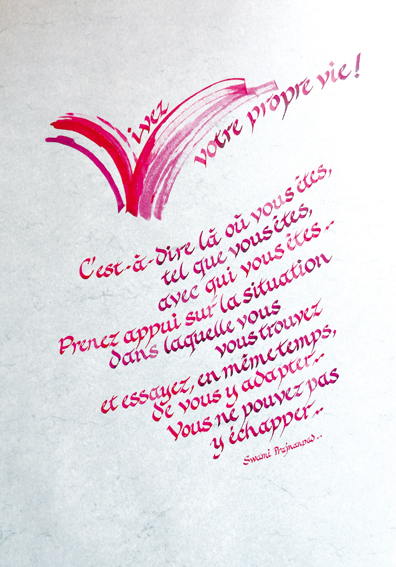 Vivez
votre propre vie !
C'est-à-dire là où vous êtes,
tel que vous êtes,
avec qui vous êtes..
Prenez appui sur la situation
dans laquelle vous
vous trouvez
et essayez, en même temps,
de vous y adapter..
Vous ne pouvez pas
y échapper..
Swami Prajnanpad..